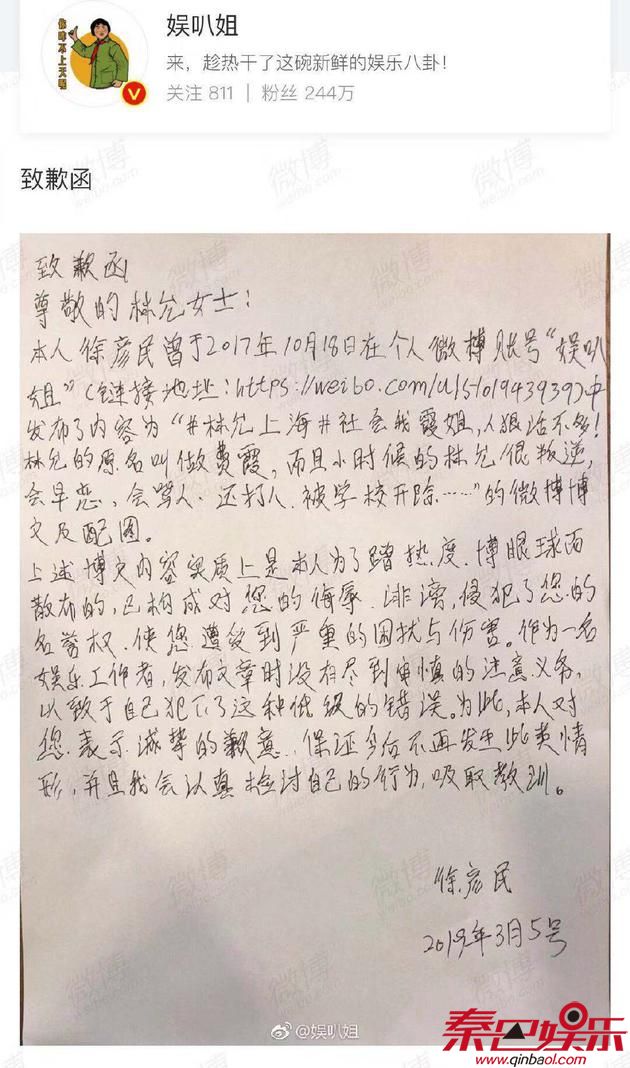 你咋不上天呢
娱叭姐
来，趁热干了这碗新鲜的娱乐八卦！
关注 811 | 粉丝 244万
致歉函
致歉函
尊敬的林允女士：
本人徐彦民曾于2017年10月18日在个人微博账号“娱叭
姐”（链接地址：https://weibo.com/u/5101943939）中
发布了内容为“#林允上海#社会我霞姐，人狠话不多！
林允的原名叫做费霞，而且小时候的林允很叛逆，
会早恋、会骂人、还打人、被学校开除……”的微博博
文及配图。
上述博文内容实质上是本人为了蹭热度、博眼球而
散布的，已构成对您的侮辱、诽谤，侵犯了您的
名誉权、使您遭受到严重的困扰与伤害。作为一名
娱乐工作者，发布文章时没有尽到审慎的注意义务，
以致于自己犯下了这种低级的错误。为此，本人对
您表示诚挚的歉意，保证今后不再发生此类情
形，并且我会认真检讨自己的行为，吸取教训。
徐彦民
2019年3月5号
@娱叭姐
秦巴娱乐
www.qinbaol.com
微博
weibo.com